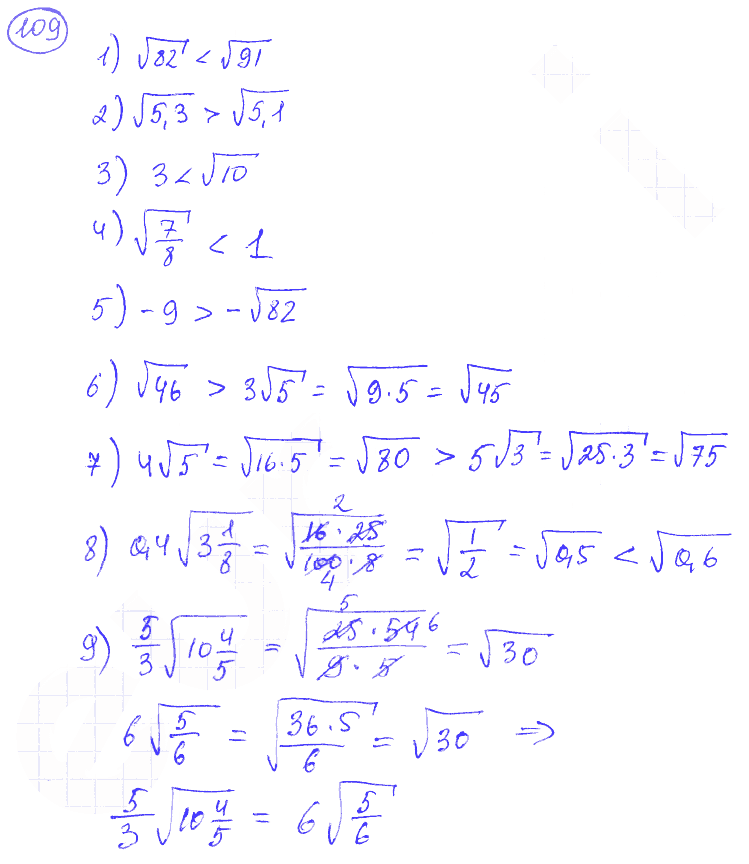 109
1) √82 < √91
2) √5,3 > √5,1
3) 3 < √10
4) √(7/8) < 1
5) -9 > -√82
6) √46 > 3√5 = √(9·5) = √45
7) 4√5 = √(16·5) = √80 > 5√3 = √(25·3) = √75
8) 0,4√(3 1/8) = √((16·25)/(100·8)) = √(1/2) = √0,5 < √0,6
2
4
9) 5/3 √(10 4/5) = √((25·54)/(9·5)) = √30
5
6
6√(5/6) = √((36·5)/6) = √30 ⇒
5/3 √(10 4/5) = 6√(5/6)